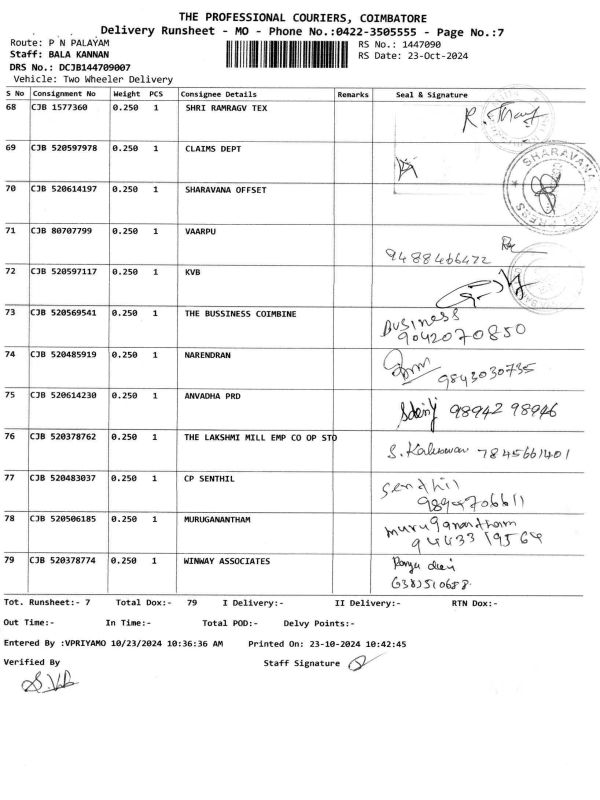 THE PROFESSIONAL COURIERS, COIMBATORE
Delivery Runsheet - MO - Phone No.:0422-3505555 - Page No.:7
Route: P N PALAYAM RS No.: 1447090
Staff: BALA KANNAN RS Date: 23-Oct-2024
DRS No.: DCJB144709007
Vehicle: Two Wheeler Delivery
S No Consignment No Weight PCS Consignee Details Remarks Seal & Signature
68 CJB 1577360 0.250 1 SHRI RAMRAGV TEX
69 CJB 520597978 0.250 1 CLAIMS DEPT
SHARAVANA
70 CJB 520614197 0.250 1 SHARAVANA OFFSET
PRESS
71 CJB 80707799 0.250 1 VAARPU
9488466472
72 CJB 520597117 0.250 1 KVB
73 CJB 520569541 0.250 1 THE BUSSINESS COIMBINE
Business
9042070850
74 CJB 520485919 0.250 1 NARENDRAN
9843030735
75 CJB 520614230 0.250 1 ANVADHA PRD
98942 98946
76 CJB 520378762 0.250 1 THE LAKSHMI MILL EMP CO OP STO
7845661401
77 CJB 520483037 0.250 1 CP SENTHIL
Sendhil
9894706611
78 CJB 520506185 0.250 1 MURUGANANTHAM
Muruganantham
79 CJB 520378774 0.250 1 WINWAY ASSOCIATES
Tot. Runsheet:- 7 Total Dox:- 79 I Delivery:- II Delivery:- RTN Dox:-
Out Time:- In Time:- Total POD:- Delvy Points:-
Entered By :VPRIYAMO 10/23/2024 10:36:36 AM Printed On: 23-10-2024 10:42:45
Verified By Staff Signature